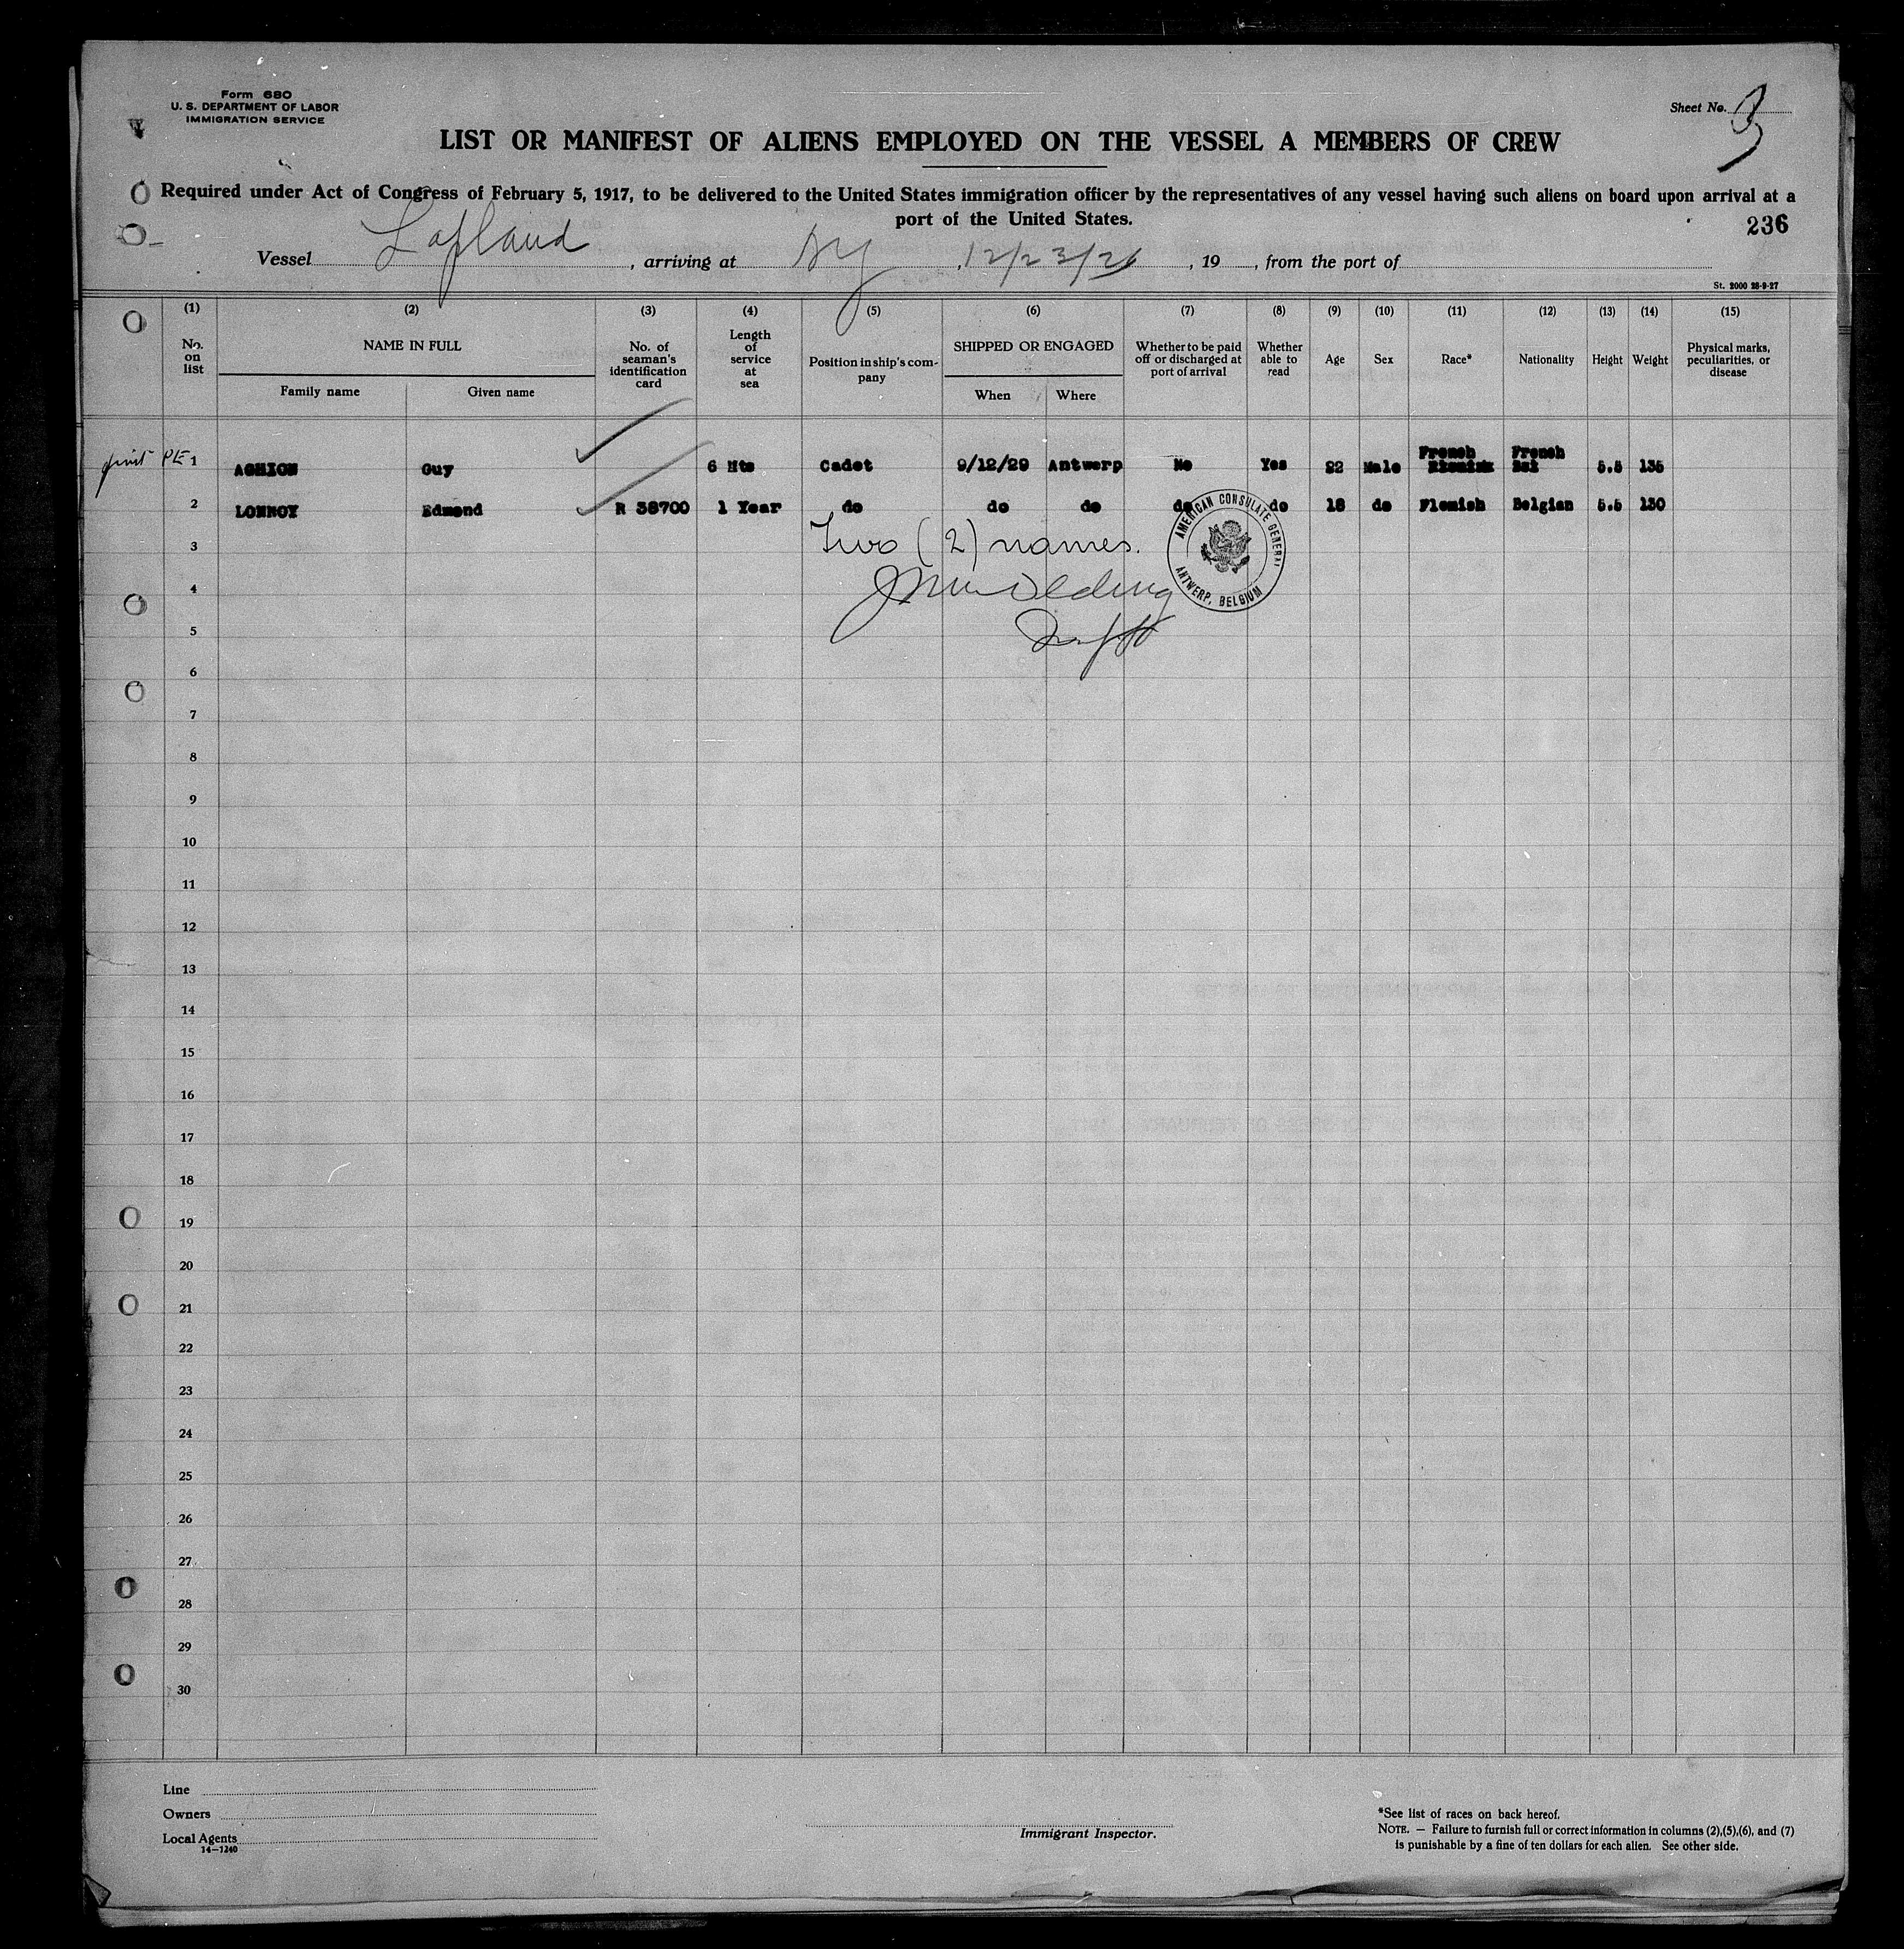 Form 680
U. S. DEPARTMENT OF LABOR
IMMIGRATION SERVICE
Sheet No. 3
LIST OR MANIFEST OF ALIENS EMPLOYED ON THE VESSEL A MEMBERS OF CREW
Required under Act of Congress of February 5, 1917, to be delivered to the United States immigration officer by the representatives of any vessel having such aliens on board upon arrival at a
port of the United States.
236
Vessel Lapland, arriving at NY, 12/23/29, 19, from the port of
St. 2000 28-9-27
(1) (2) (3) (4) (5) (6) (7) (8) (9) (10) (11) (12) (13) (14) (15)
No. on list NAME IN FULL Family name Given name No. of seaman's identification card Length of service at sea Position in ship's company SHIPPED OR ENGAGED When Where Whether to be paid off or discharged at port of arrival Whether able to read Age Sex Race* Nationality Height Weight Physical marks, peculiarities, or disease
French French
PE 1 AGHION Guy 6 Mts Cadet 9/12/29 Antwerp No Yes 22 Male 5.5 135
2 LONROY Edmond R 38700 1 Year do do do do do 18 do Flemish Belgian 5.5 130
Two (2) names.
AMERICAN CONSULATE GENERAL
ANTWERP, BELGIUM
3
4
5
6
7
8
9
10
11
12
13
14
15
16
17
18
19
20
21
22
23
24
25
26
27
28
29
30
Line
Owners
Local Agents
14-1240
Immigrant Inspector.
*See list of races on back hereof.
NOTE. — Failure to furnish full or correct information in columns (2),(5),(6), and (7)
is punishable by a fine of ten dollars for each alien. See other side.